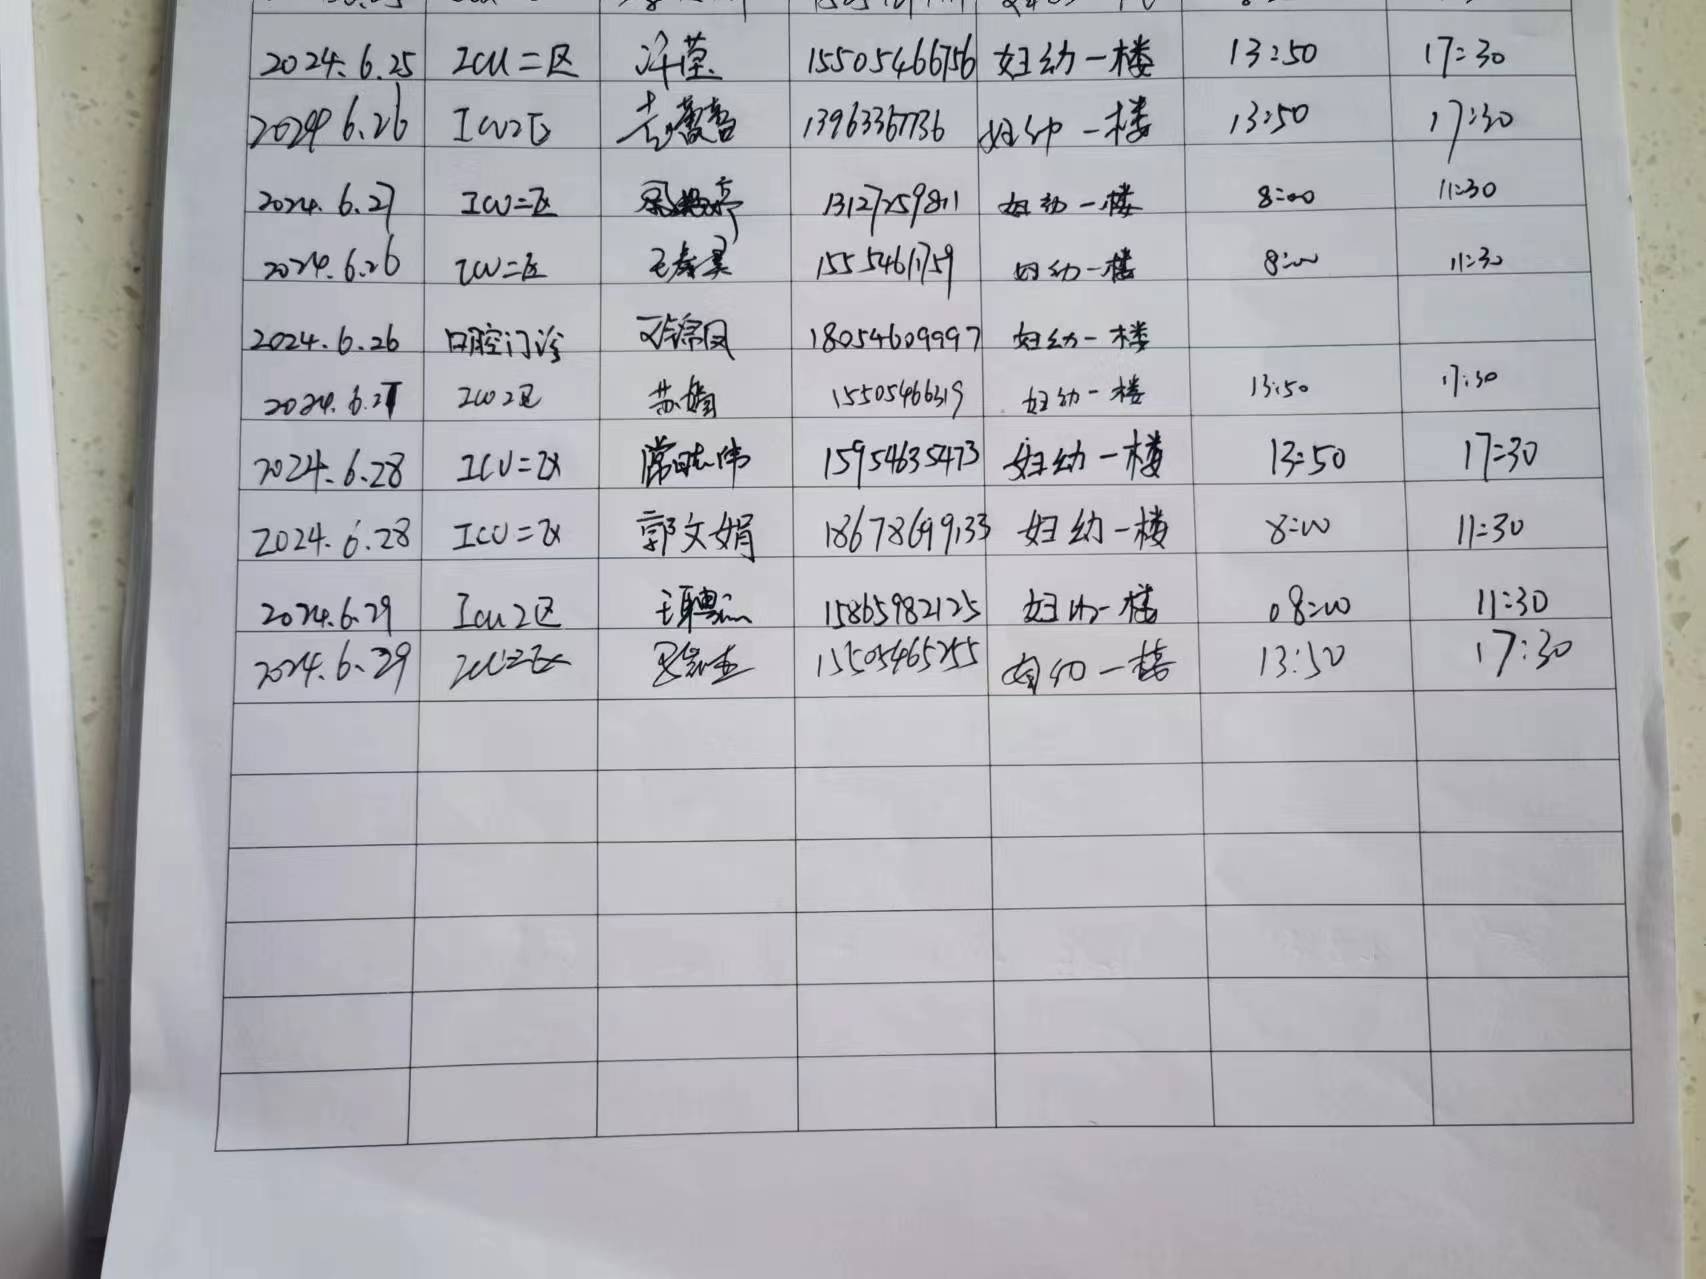 2024.6.25 ICU二区 许莹 15505466756 妇幼一楼 13:50 17:30
2024 6.26 ICU2区 13963367736 妇幼一楼 13:50 17:30
2024.6.27 ICU二区 13127259811 妇幼一楼 8:00 11:30
2024.6.26 ICU二区 妇幼一楼 8:00 11:30
2024.6.26 口腔门诊 18054609997 妇幼一楼
2024.6.27 ICU2区 苏娟 15505466319 妇幼一楼 13:50 17:30
2024.6.28 ICU二区 常志伟 15954635473 妇幼一楼 13:50 17:30
2024.6.28 ICU二区 郭文娟 18678699133 妇幼一楼 8:00 11:30
2024.6.29 ICU2区 15865982125 妇幼一楼 08:00 11:30
2024.6.29 ICU二区 15505465255 妇幼一楼 13:50 17:30